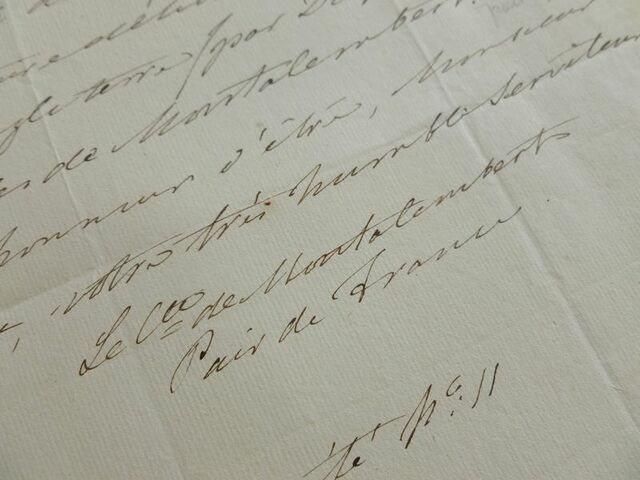 gleterre (par
de Montalembert.
honneur d'être, Monsieur
votre très humble serviteur
Le Cte de Montalembert
Pair de France.
No. 11